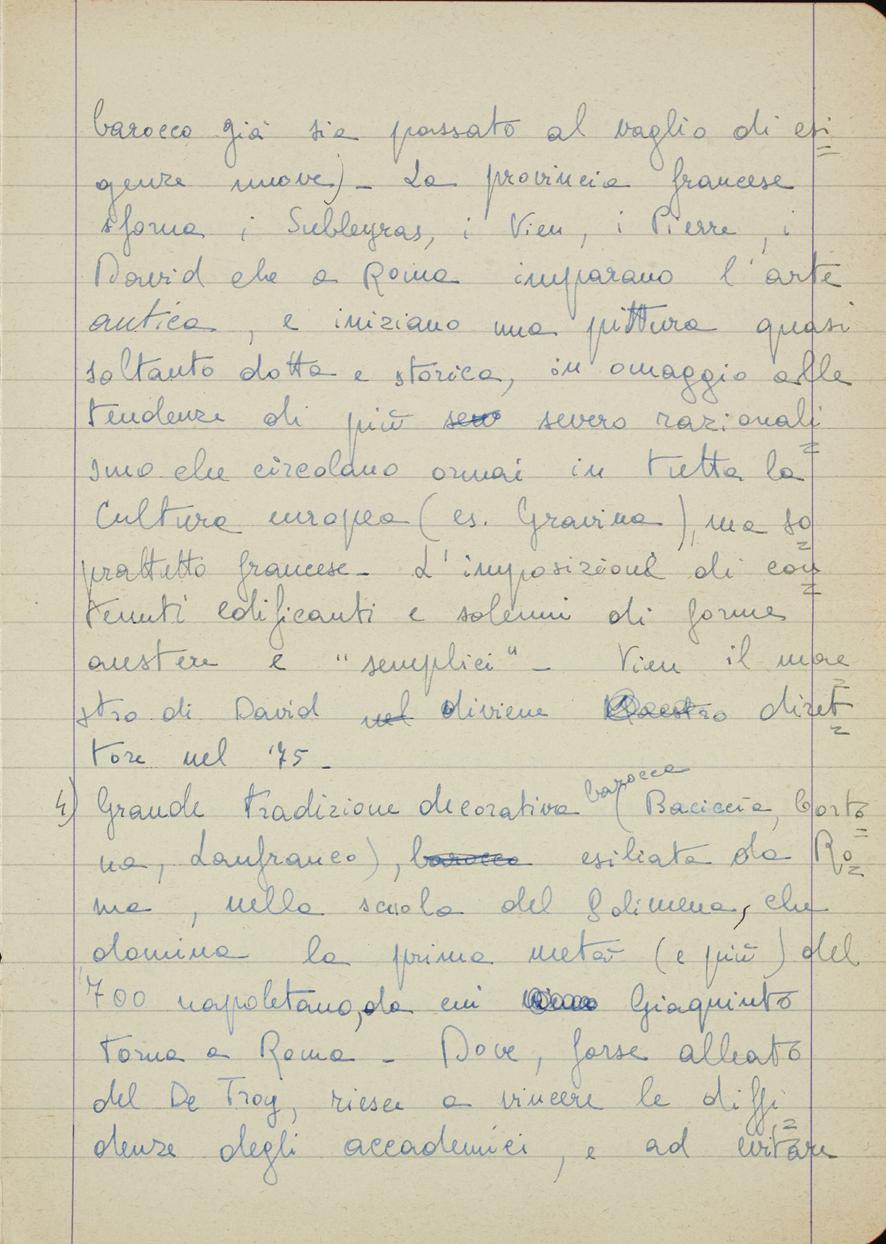 barocco già sia passato al vaglio di esi=
genze nuove) - La provincia francese
sforna i Subleyras, i Vien, i Pierre, i
David che a Roma imparano l'arte
antica, e iniziano una pittura quasi
soltanto dotta e storica, in omaggio alle
tendenze di più severo razionali=
smo che circolano ormai in tutta la
Cultura europea (es. Gravina), ma so=
prattutto francese - L'imposizione di con=
tenuti edificanti e solenni di forme
austere e "semplici" - Vien il mae=
stro di David diviene diret=
tore nel '75 -
4) Grande tradizione decorativa barocca (Baciccia, Corto=
na, Lanfranco), esiliata da Ro=
ma, nella scuola del Solimena, che
domina la prima metà (e più) del
'700 napoletano, da cui Giaquinto
torna a Roma - Dove, forse alleato
del De Troy, riesce a vincere le diffi=
denze degli accademici, e ad evitare